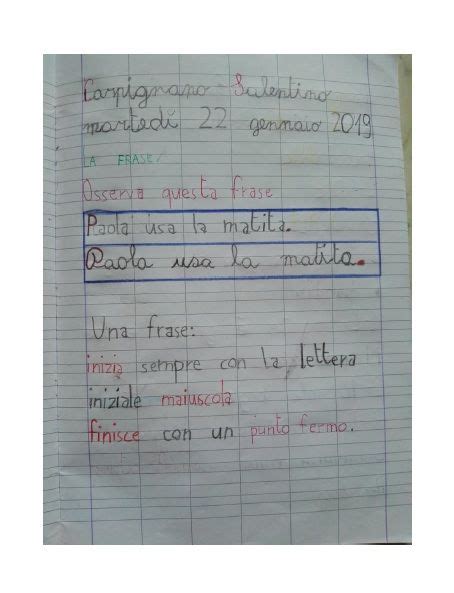 Carpignano Salentino
martedì 22 gennaio 2019
LA FRASE
Osserva questa frase
Paola usa la matita.
Paola usa la matita.
Una frase:
inizia sempre con la lettera
iniziale maiuscola
finisce con un punto fermo.